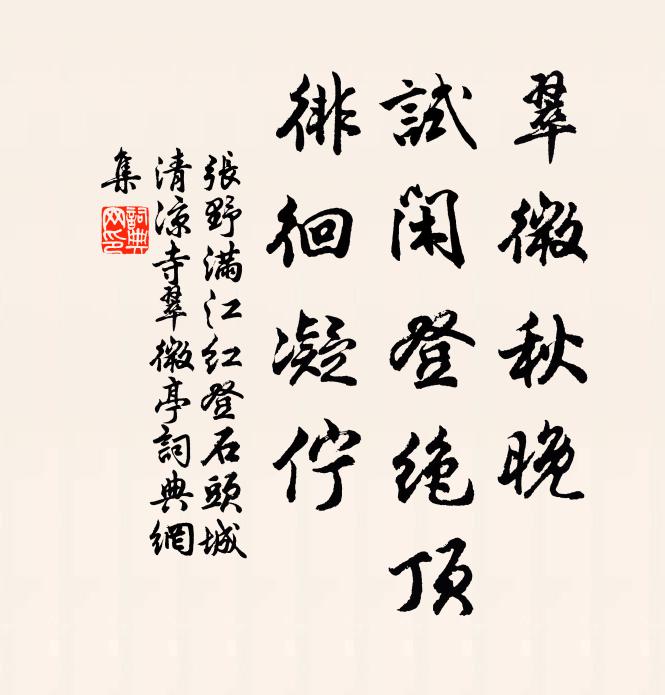 翠微秋晚
試闲登绝頂
徘徊凝佇
張野滿江红登石頭城
清凉寺翠微亭詞典網
集
詞典
网印